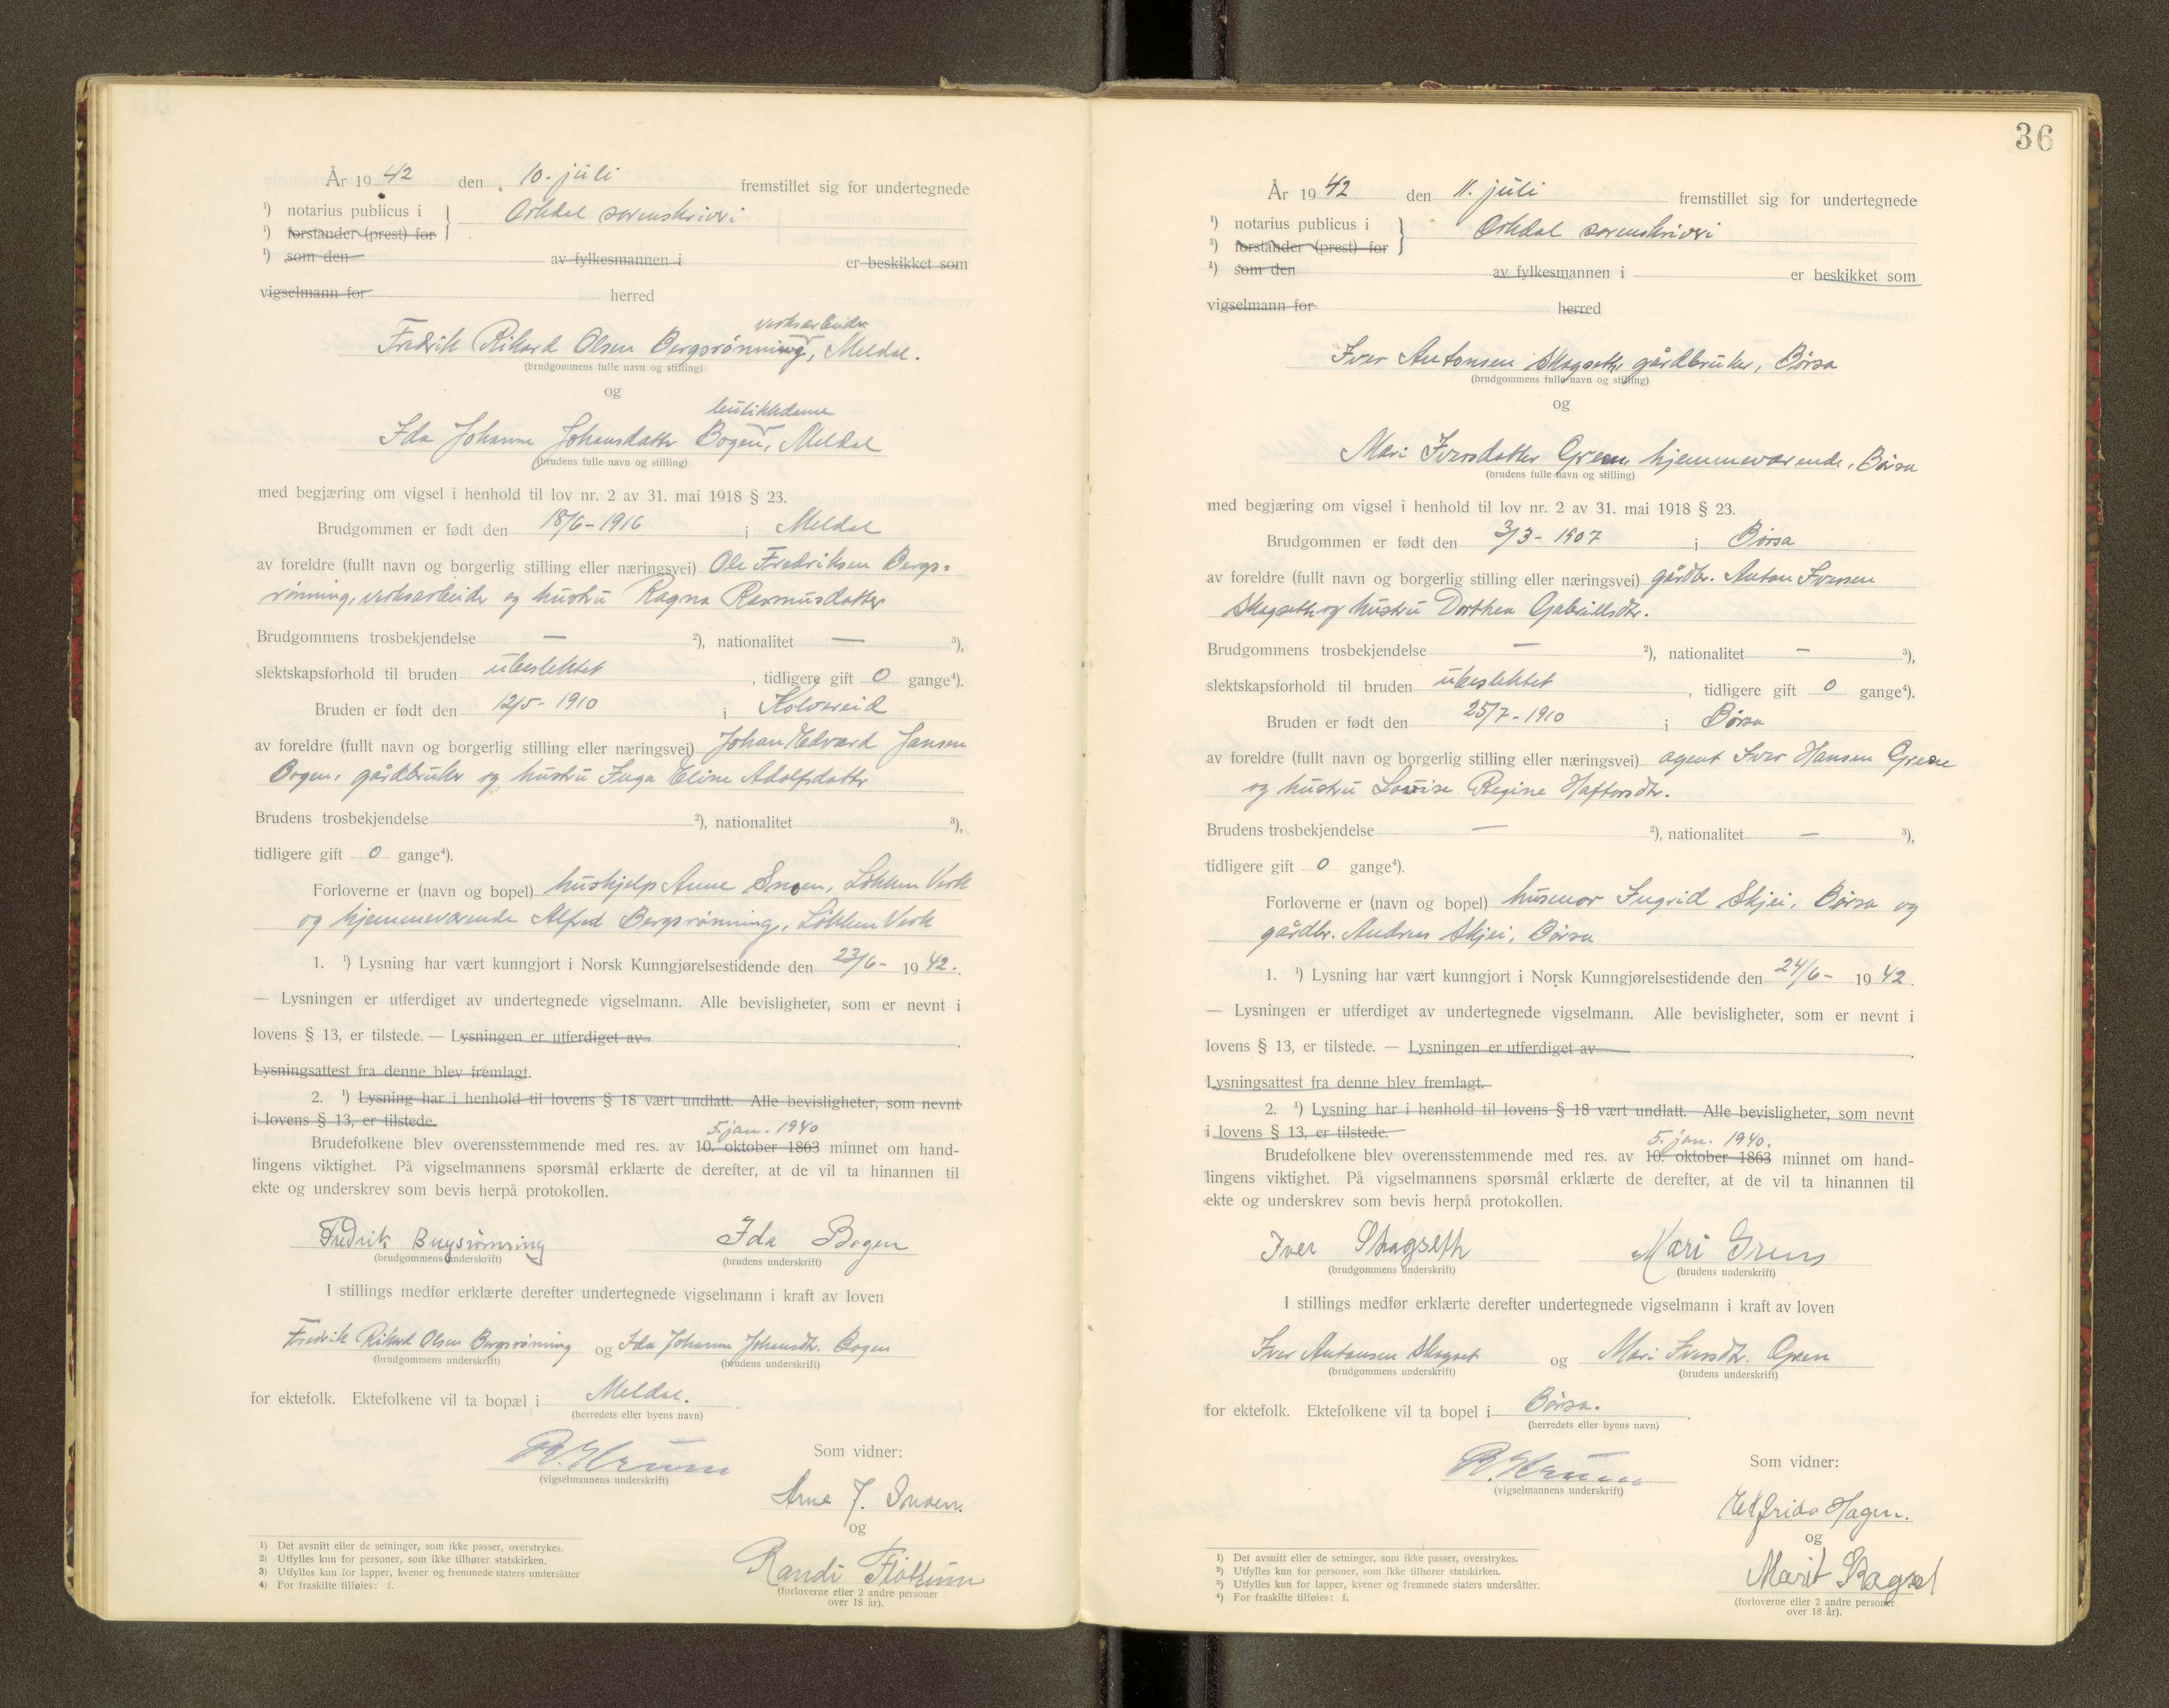 År 19 42 den 10. juli fremstillet sig for undertegnede
¹) notarius publicus i } Orkdal sorenskriveri
¹) forstander (prest) for
¹) som den av fylkesmannen i er beskikket som
vigselmann for herred
verksarbeider
Fredrik Rikard Olsen Bergsrønning, Meldal.
(brudgommens fulle navn og stilling)
og
butikkdame
Ida Johanne Johansdatter Bogen, Meldal
(brudens fulle navn og stilling)
med begjæring om vigsel i henhold til lov nr. 2 av 31. mai 1918 § 23.
Brudgommen er født den 18/6-1916 i Meldal
av foreldre (fullt navn og borgerlig stilling eller næringsvei) Ole Fredriksen Bergs-
rønning, verksarbeider og hustru Ragna Rasmusdatter
Brudgommens trosbekjendelse — ²), nationalitet — ³),
slektskapsforhold til bruden ubeslektet, tidligere gift 0 gange⁴).
Bruden er født den 12/5-1910 i Kolvereid
av foreldre (fullt navn og borgerlig stilling eller næringsvei) Johan Edvard Jansen
Bogen, gårdbruker og hustru Inga Eline Adolfsdatter
Brudens trosbekjendelse ²), nationalitet ³),
tidligere gift 0 gange⁴).
Forloverne er (navn og bopel) hushjelp Anne Snoen, Løkken Verk
og hjemmeværende Alfred Bergsrønning, Løkken Verk
1. ¹) Lysning har vært kunngjort i Norsk Kunngjørelsestidende den 23/6- 19 42.
— Lysningen er utferdiget av undertegnede vigselmann. Alle bevisligheter, som er nevnt i
lovens § 13, er tilstede. — Lysningen er utferdiget av
Lysningsattest fra denne blev fremlagt.
2. ¹) Lysning har i henhold til lovens § 18 vært undlatt. Alle bevisligheter, som nevnt
i lovens § 13, er tilstede.
5. jan. 1940
Brudefolkene blev overensstemmende med res. av 10. oktober 1863 minnet om hand-
lingens viktighet. På vigselmannens spørsmål erklærte de derefter, at de vil ta hinannen til
ekte og underskrev som bevis herpå protokollen.
Fredrik Bergsrønning Ida Bogen
(brudgommens underskrift) (brudens underskrift)
I stillings medfør erklærte derefter undertegnede vigselmann i kraft av loven
Fredrik Rikard Olsen Bergsrønning og Ida Johanne Johansdtr. Bogen
(brudgommens underskrift) (brudens underskrift)
for ektefolk. Ektefolkene vil ta bopæl i Meldal.
(herredets eller byens navn)
(vigselmannens underskrift)
Som vidner:
Anne J. Snoen.
og
Randi Fløttum
(forloverne eller 2 andre personer
over 18 år).
1) Det avsnitt eller de setninger, som ikke passer, overstrykes.
2) Utfylles kun for personer, som ikke tilhører statskirken.
3) Utfylles kun for lapper, kvener og fremmede staters undersåtter
4) For fraskilte tilføies: f.
36
År 19 42 den 11. juli fremstillet sig for undertegnede
¹) notarius publicus i } Orkdal sorenskriveri
¹) forstander (prest) for
¹) som den av fylkesmannen i er beskikket som
vigselmann for herred
Iver Antonsen Skagseth, gårdbruker, Børsa
(brudgommens fulle navn og stilling)
og
Mari Iversdatter Green, hjemmeværende, Børsa
(brudens fulle navn og stilling)
med begjæring om vigsel i henhold til lov nr. 2 av 31. mai 1918 § 23.
Brudgommen er født den 3/3-1907 i Børsa
av foreldre (fullt navn og borgerlig stilling eller næringsvei) gårdbr. Anton Iversen
Skagseth og hustru Dorthea Gabrielsdtr.
Brudgommens trosbekjendelse — ²), nationalitet — ³),
slektskapsforhold til bruden ubeslektet, tidligere gift 0 gange⁴).
Bruden er født den 25/7-1910 i Børsa
av foreldre (fullt navn og borgerlig stilling eller næringsvei) agent Iver Hansen Green
og hustru Louise Regine Haftorsdtr.
Brudens trosbekjendelse — ²), nationalitet — ³),
tidligere gift 0 gange⁴).
Forloverne er (navn og bopel) husmor Ingrid Skjei, Børsa og
gårdbr. Andreas Skjei, Børsa
1. ¹) Lysning har vært kunngjort i Norsk Kunngjørelsestidende den 24/6- 19 42.
— Lysningen er utferdiget av undertegnede vigselmann. Alle bevisligheter, som er nevnt i
lovens § 13, er tilstede. — Lysningen er utferdiget av
Lysningsattest fra denne blev fremlagt.
2. ¹) Lysning har i henhold til lovens § 18 vært undlatt. Alle bevisligheter, som nevnt
i lovens § 13, er tilstede.
5. jan. 1940.
Brudefolkene blev overensstemmende med res. av 10. oktober 1863 minnet om hand-
lingens viktighet. På vigselmannens spørsmål erklærte de derefter, at de vil ta hinannen til
ekte og underskrev som bevis herpå protokollen.
Iver Skagseth Mari Green
(brudgommens underskrift) (brudens underskrift)
I stillings medfør erklærte derefter undertegnede vigselmann i kraft av loven
Iver Antonsen Skagset og Mari Iversdtr. Green
(brudgommens underskrift) (brudens underskrift)
for ektefolk. Ektefolkene vil ta bopel i Børsa.
(herredets eller byens navn)
(vigselmannens underskrift)
Som vidner:
Hagen.
og
Marit Skagset
(forloverne eller 2 andre personer
over 18 år).
1) Det avsnitt eller de setninger, som ikke passer, overstrykes.
2) Utfylles kun for personer, som ikke tilhører statskirken.
3) Utfylles kun for lapper, kvener og fremmede staters undersåtter.
4) For fraskilte tilføies: f.